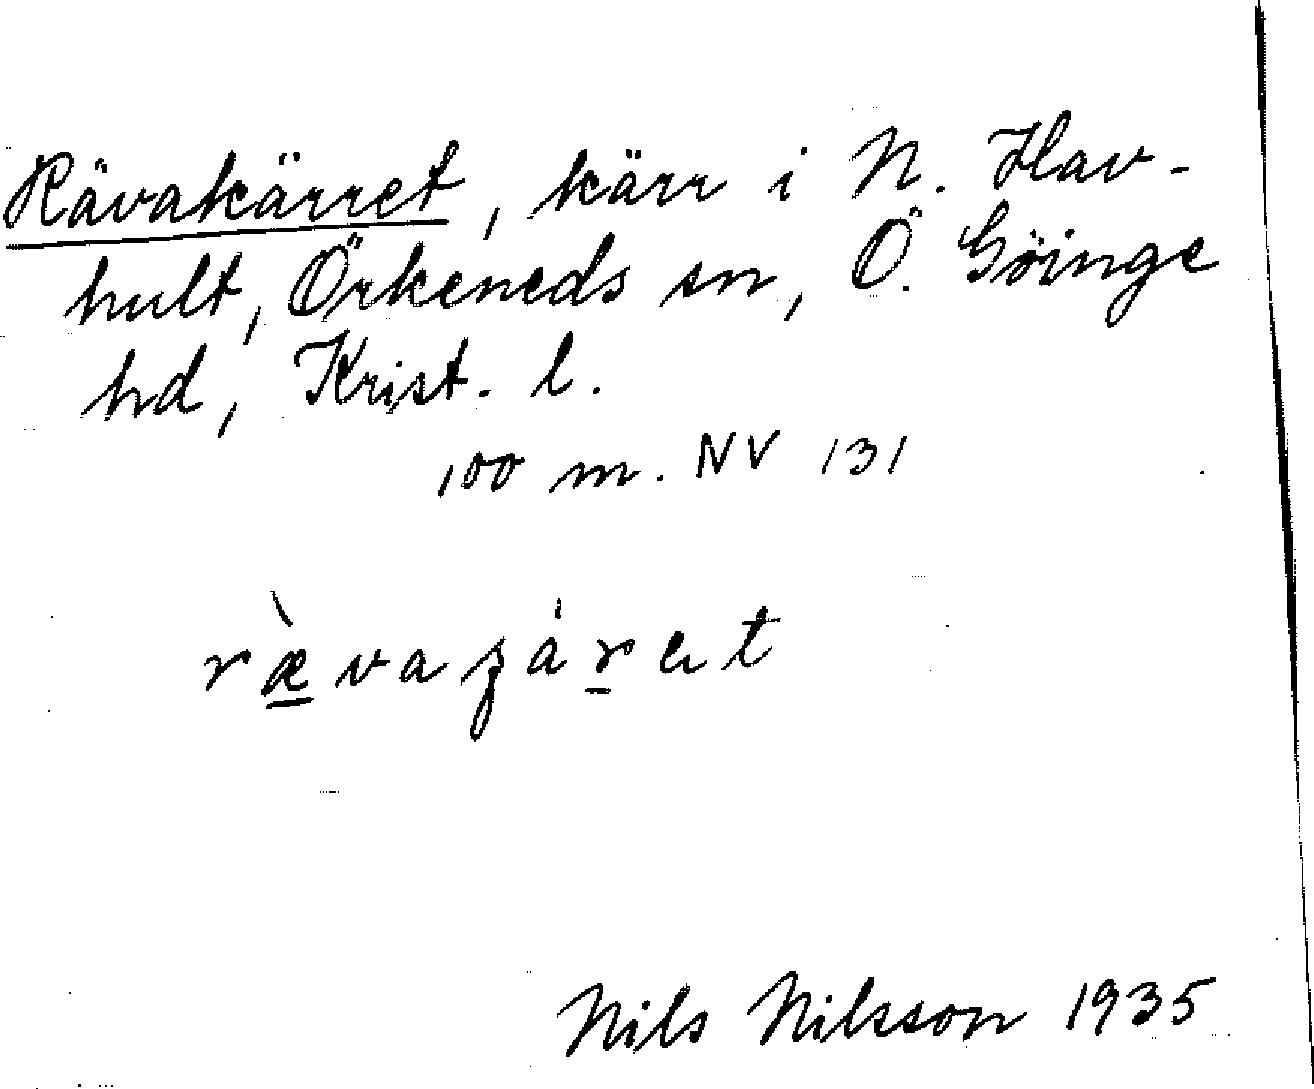 Rävakärret, kärr i N. Hav-
hult, Örkeneds sn, Ö. Göinge
hd, Krist. l.
100 m. NV 131
Nils Nilsson 1935